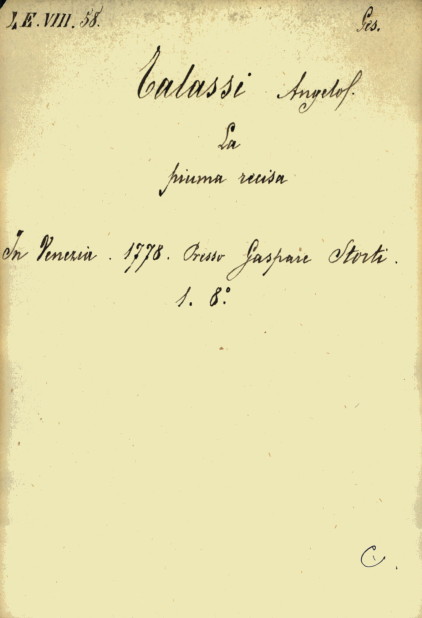 I.E.VIII.58. Ges.
Talassi Angelo.
La
piuma recisa
In Venezia. 1778. Presso Gaspare Storti.
1. 8°.
C.